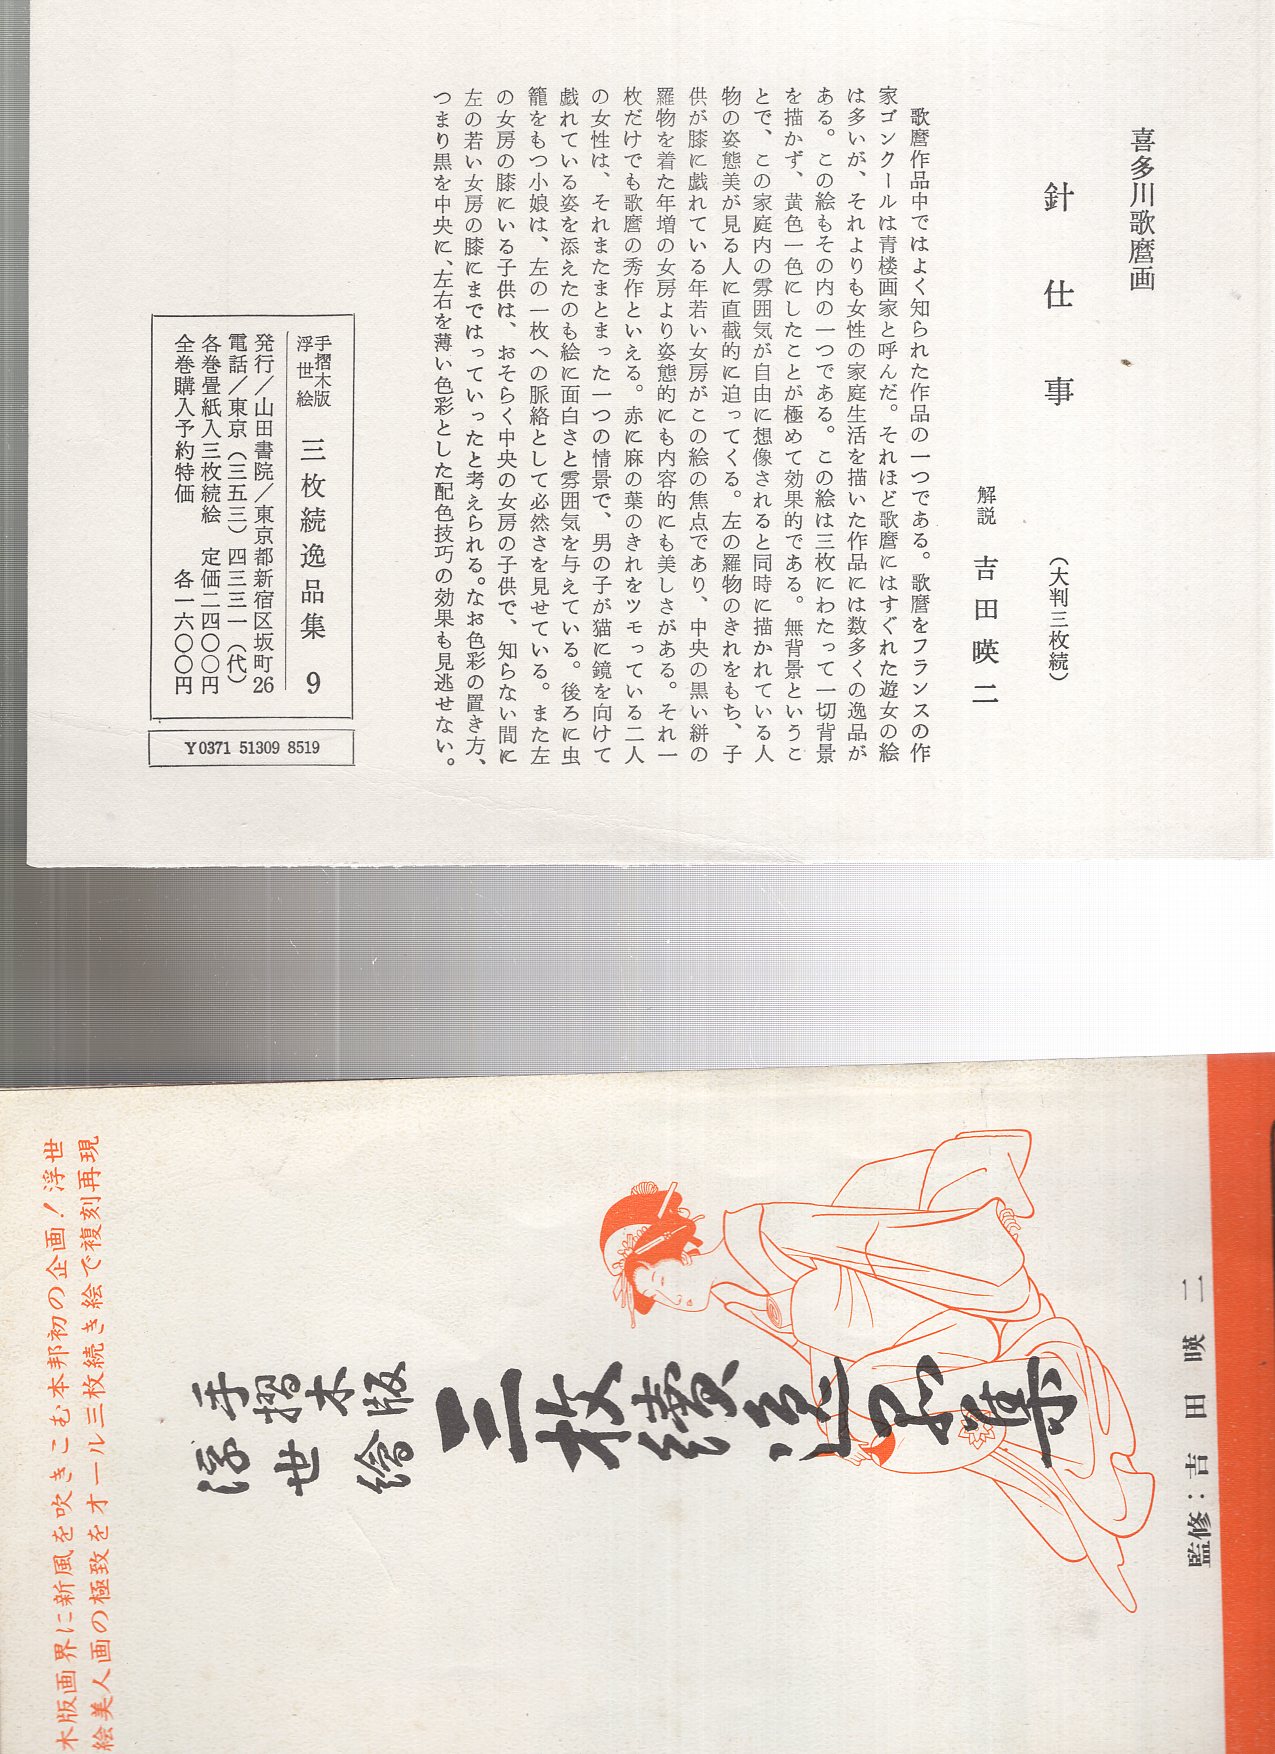 喜多川歌麿画
針仕事
（大判三枚続）
解説 吉田暎二
歌麿作品中ではよく知られた作品の一つである。歌麿をフランスの作
家ゴンクールは青楼画家と呼んだ。それほど歌麿にはすぐれた遊女の絵
は多いが、それよりも女性の家庭生活を描いた作品には数多くの逸品が
ある。この絵もその内の一つである。この絵は三枚にわたって一切背景
を描かず、黄色一色にしたことが極めて効果的である。無背景というこ
とで、この家庭内の雰囲気が自由に想像されると同時に描かれている人
物の姿態美が見る人に直截的に迫ってくる。左の羅物のきれをもち、子
供が膝に戯れている年若い女房がこの絵の焦点であり、中央の黒い絣の
羅物を着た年増の女房より姿態的にも内容的にも美しさがある。それ一
枚だけでも歌麿の秀作といえる。赤に麻の葉のきれをツモっている二人
の女性は、それまたまとまった一つの情景で、男の子が猫に鏡を向けて
戯れている姿を添えたのも絵に面白さと雰囲気を与えている。後ろに虫
籠をもつ小娘は、左の一枚への脈絡として必然さを見せている。また左
の女房の膝にいる子供は、おそらく中央の女房の子供で、知らない間に
左の若い女房の膝にまではっていったと考えられる。なお色彩の置き方、
つまり黒を中央に、左右を薄い色彩とした配色技巧の効果も見逃せない。
手摺木版
浮世絵
三枚続逸品集 9
発行／山田書院／東京都新宿区坂町26
電話／東京（三五三）四三三一（代）
各巻畳紙入三枚続絵 定価二四〇〇円
全巻購入予約特価 各一六〇〇円
Y0371 51309 8519
木版画界に新風を吹きこむ本邦初の企画！浮世
絵美人画の極致をオール三枚続き絵で複刻再現
手摺木版
浮世繪
三枚續逸品集
監修：吉田暎二